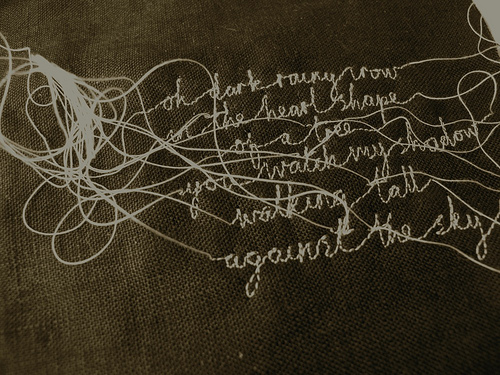 oh dark rainy crow
in the heart shape
of a tree
you watch my shadow
walking tall
against the sky